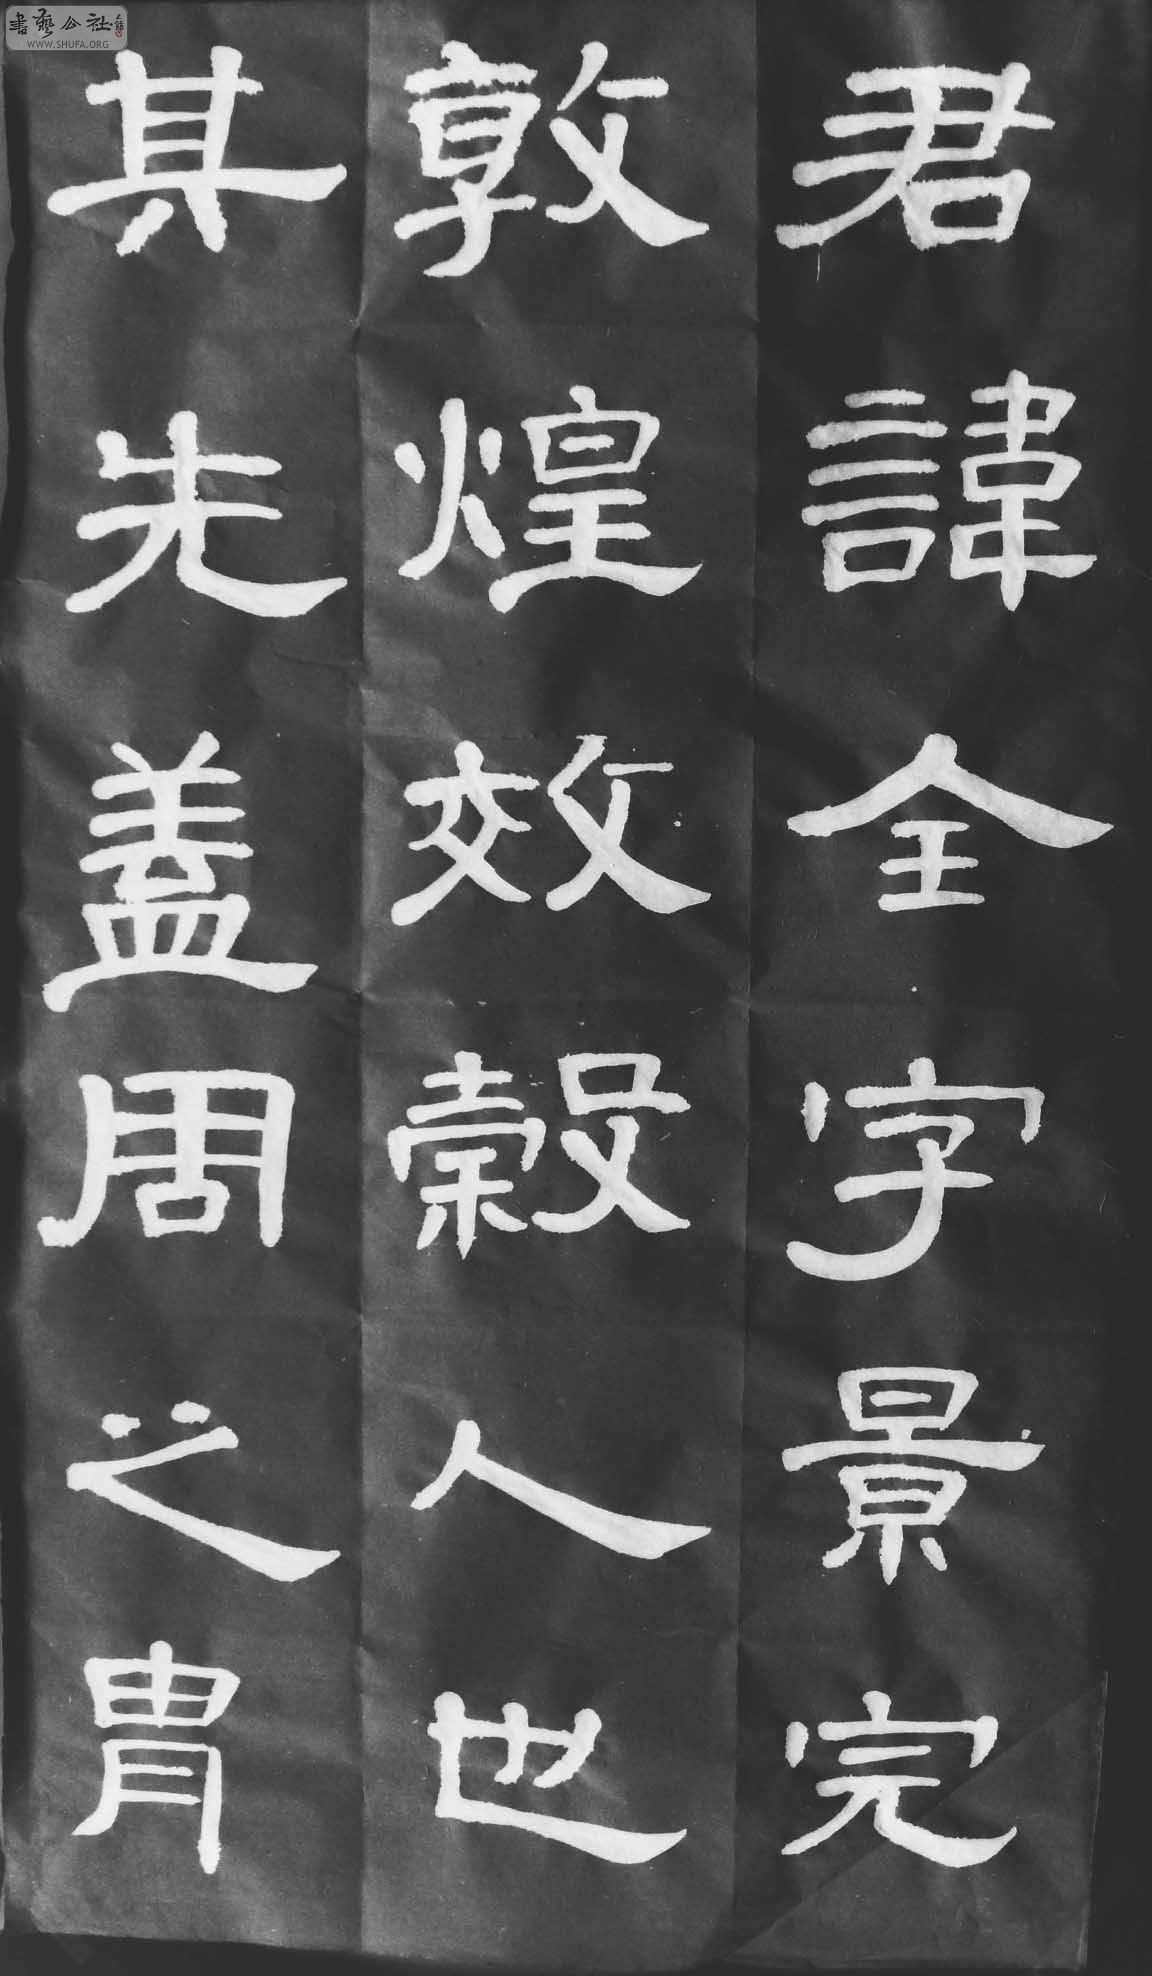 君諱全字景完
敦煌效穀人也
其先蓋周之胄
書藝公社
WWW.SHUFA.ORG